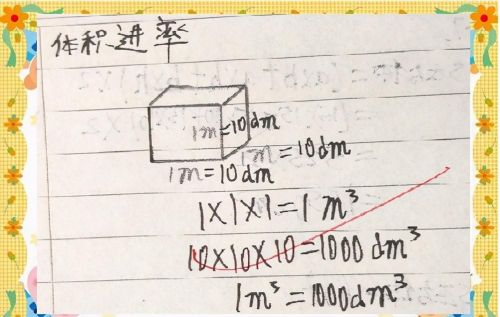 体积进率
1m=10dm
1m=10dm
=10dm
1×1×1=1m³
10×10×10=1000dm³
1m³=1000dm³